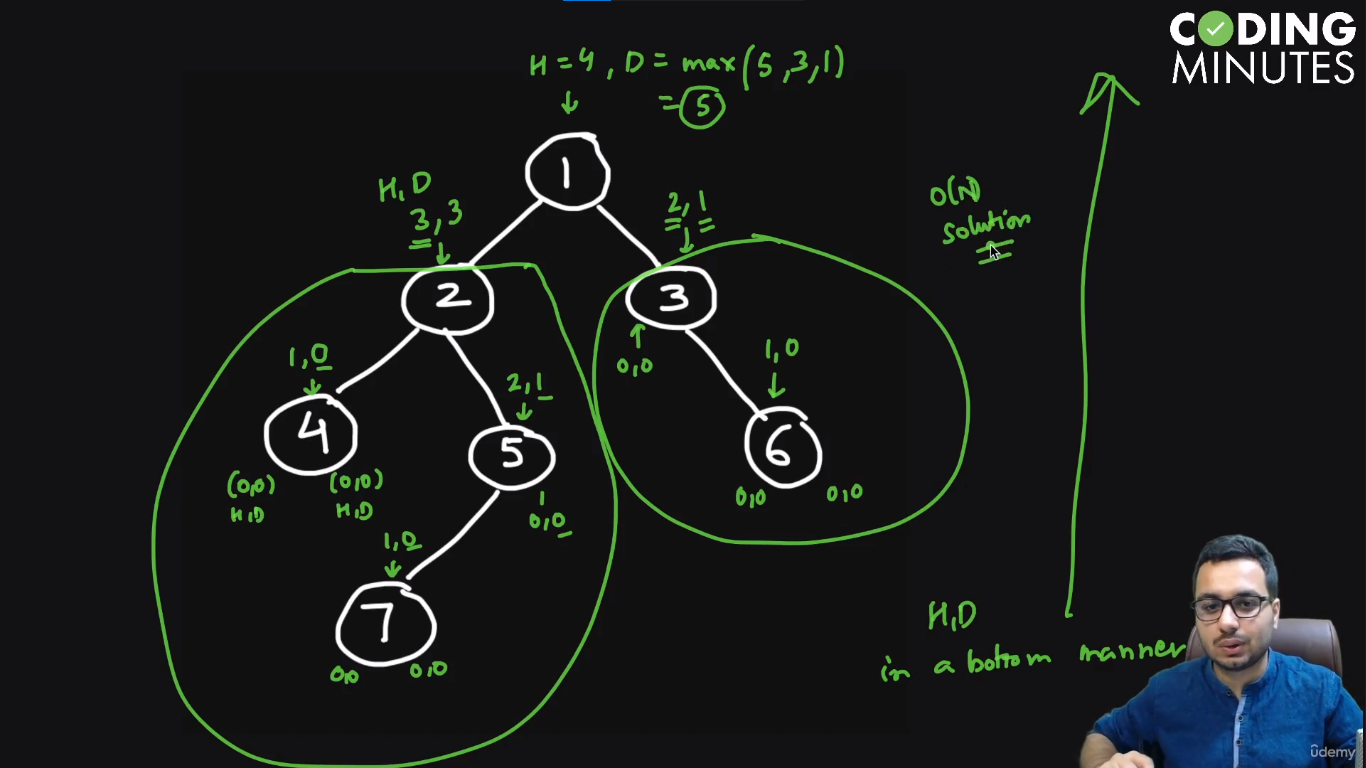 CODING
MINUTES
H = 4, D = max(5,3,1)
= 5
1
H, D
3, 3
2, 1
O(N)
solution
2
3
0,0
1, 0
1, 0
2, 1
4
5
6
(0,0)
H,D
(0,0)
H,D
0,0
0,0
0,0
1,0
7
0,0
0,0
H,D
in a bottom manner
ûdemy